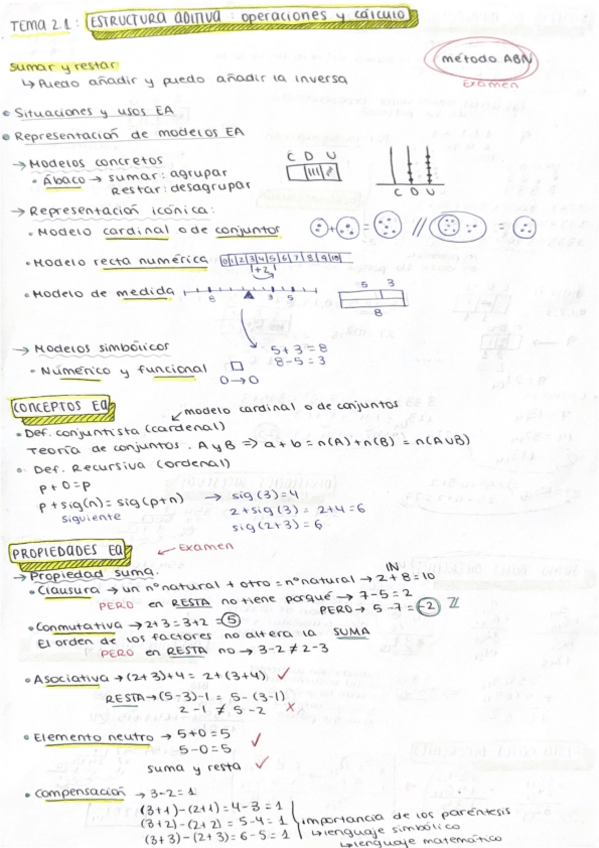 TEMA 2.1: ESTRUCTURA ADITIVA: operaciones y cálculo
sumar y restar
método ABN
↳ Puedo añadir y puedo añadir la inversa
Examen
• Situaciones y usos EA
• Representación de modelos EA
→ Modelos concretos
• Ábaco → sumar: agrupar
Restar: desagrupar
C D U
C D U
→ Representación icónica:
• Modelo cardinal o de conjuntos
+ = // =
• Modelo recta numérica
0 1 2 3 4 5 6 7 8 9 10
+2
• Modelo de medida
8 3 5
5 3
8
→ Modelos simbólicos
5+3=8
8-5=3
• Numérico y funcional
0→0
CONCEPTOS EA
modelo cardinal o de conjuntos
• Def. conjuntista (cardenal)
Teoría de conjuntos. A y B => a+b = n(A)+n(B) = n(A∪B)
• Def. Recursiva (ordenal)
p+0=p
p+sig(n)=sig(p+n)
siguiente
→ sig(3)=4
2+sig(3) = 2+4=6
sig(2+3)=6
PROPIEDADES EA
← Examen
→ Propiedad suma.
• Clausura → un nº natural + otro = nº natural → 2+8=10
IN
PERO en RESTA no tiene porqué → 7-5=2
PERO → 5-7=-2 ℤ
• Conmutativa → 2+3=3+2=5
El orden de los factores no altera la SUMA
PERO en RESTA no → 3-2≠2-3
• Asociativa → (2+3)+4 = 2+(3+4) ✓
RESTA → (5-3)-1 = 5-(3-1)
2-1 ≠ 5-2 ×
• Elemento neutro → 5+0=5
5-0=5 ✓
suma y resta ✓
• Compensación → 3-2=1
(3+1)-(2+1)=4-3=1
(3+2)-(2+2)=5-4=1
(3+3)-(2+3)=6-5=1
importancia de los paréntesis
↳ lenguaje simbólico
↳ lenguaje matemático